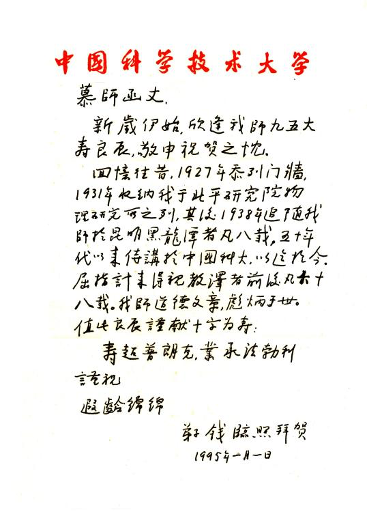 中国科学技术大学
慕师函丈,
新岁伊始,欣逢我师九五大
寿良辰,敬申祝贺之忱,
回憶往昔,1927年忝列门牆,
1931年收纳我于北平研究院物
理研究所之列,其後1938年追随我
師於昆明黑龍潭者凡八载,五十年
代以来侍講於中國科大,以迄於今.
屈指計来得親教澤者前後凡六十
八载.我师道德文章,彪炳于世.
值此良辰謹献十字为寿:
寿超普朗克,業承法勃利
謹祝
遐齡绵绵
錢臨照拜贺
1995年一月一日